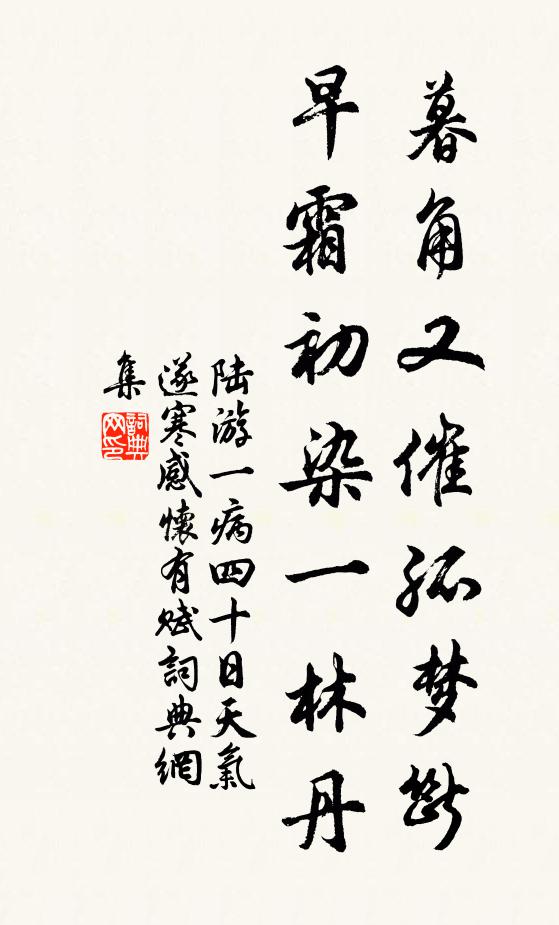 暮角又催孤梦斷
早霜初染一林丹
陆游一病四十日天氣
遂寒感懷有赋詞典網
集
詞典网印